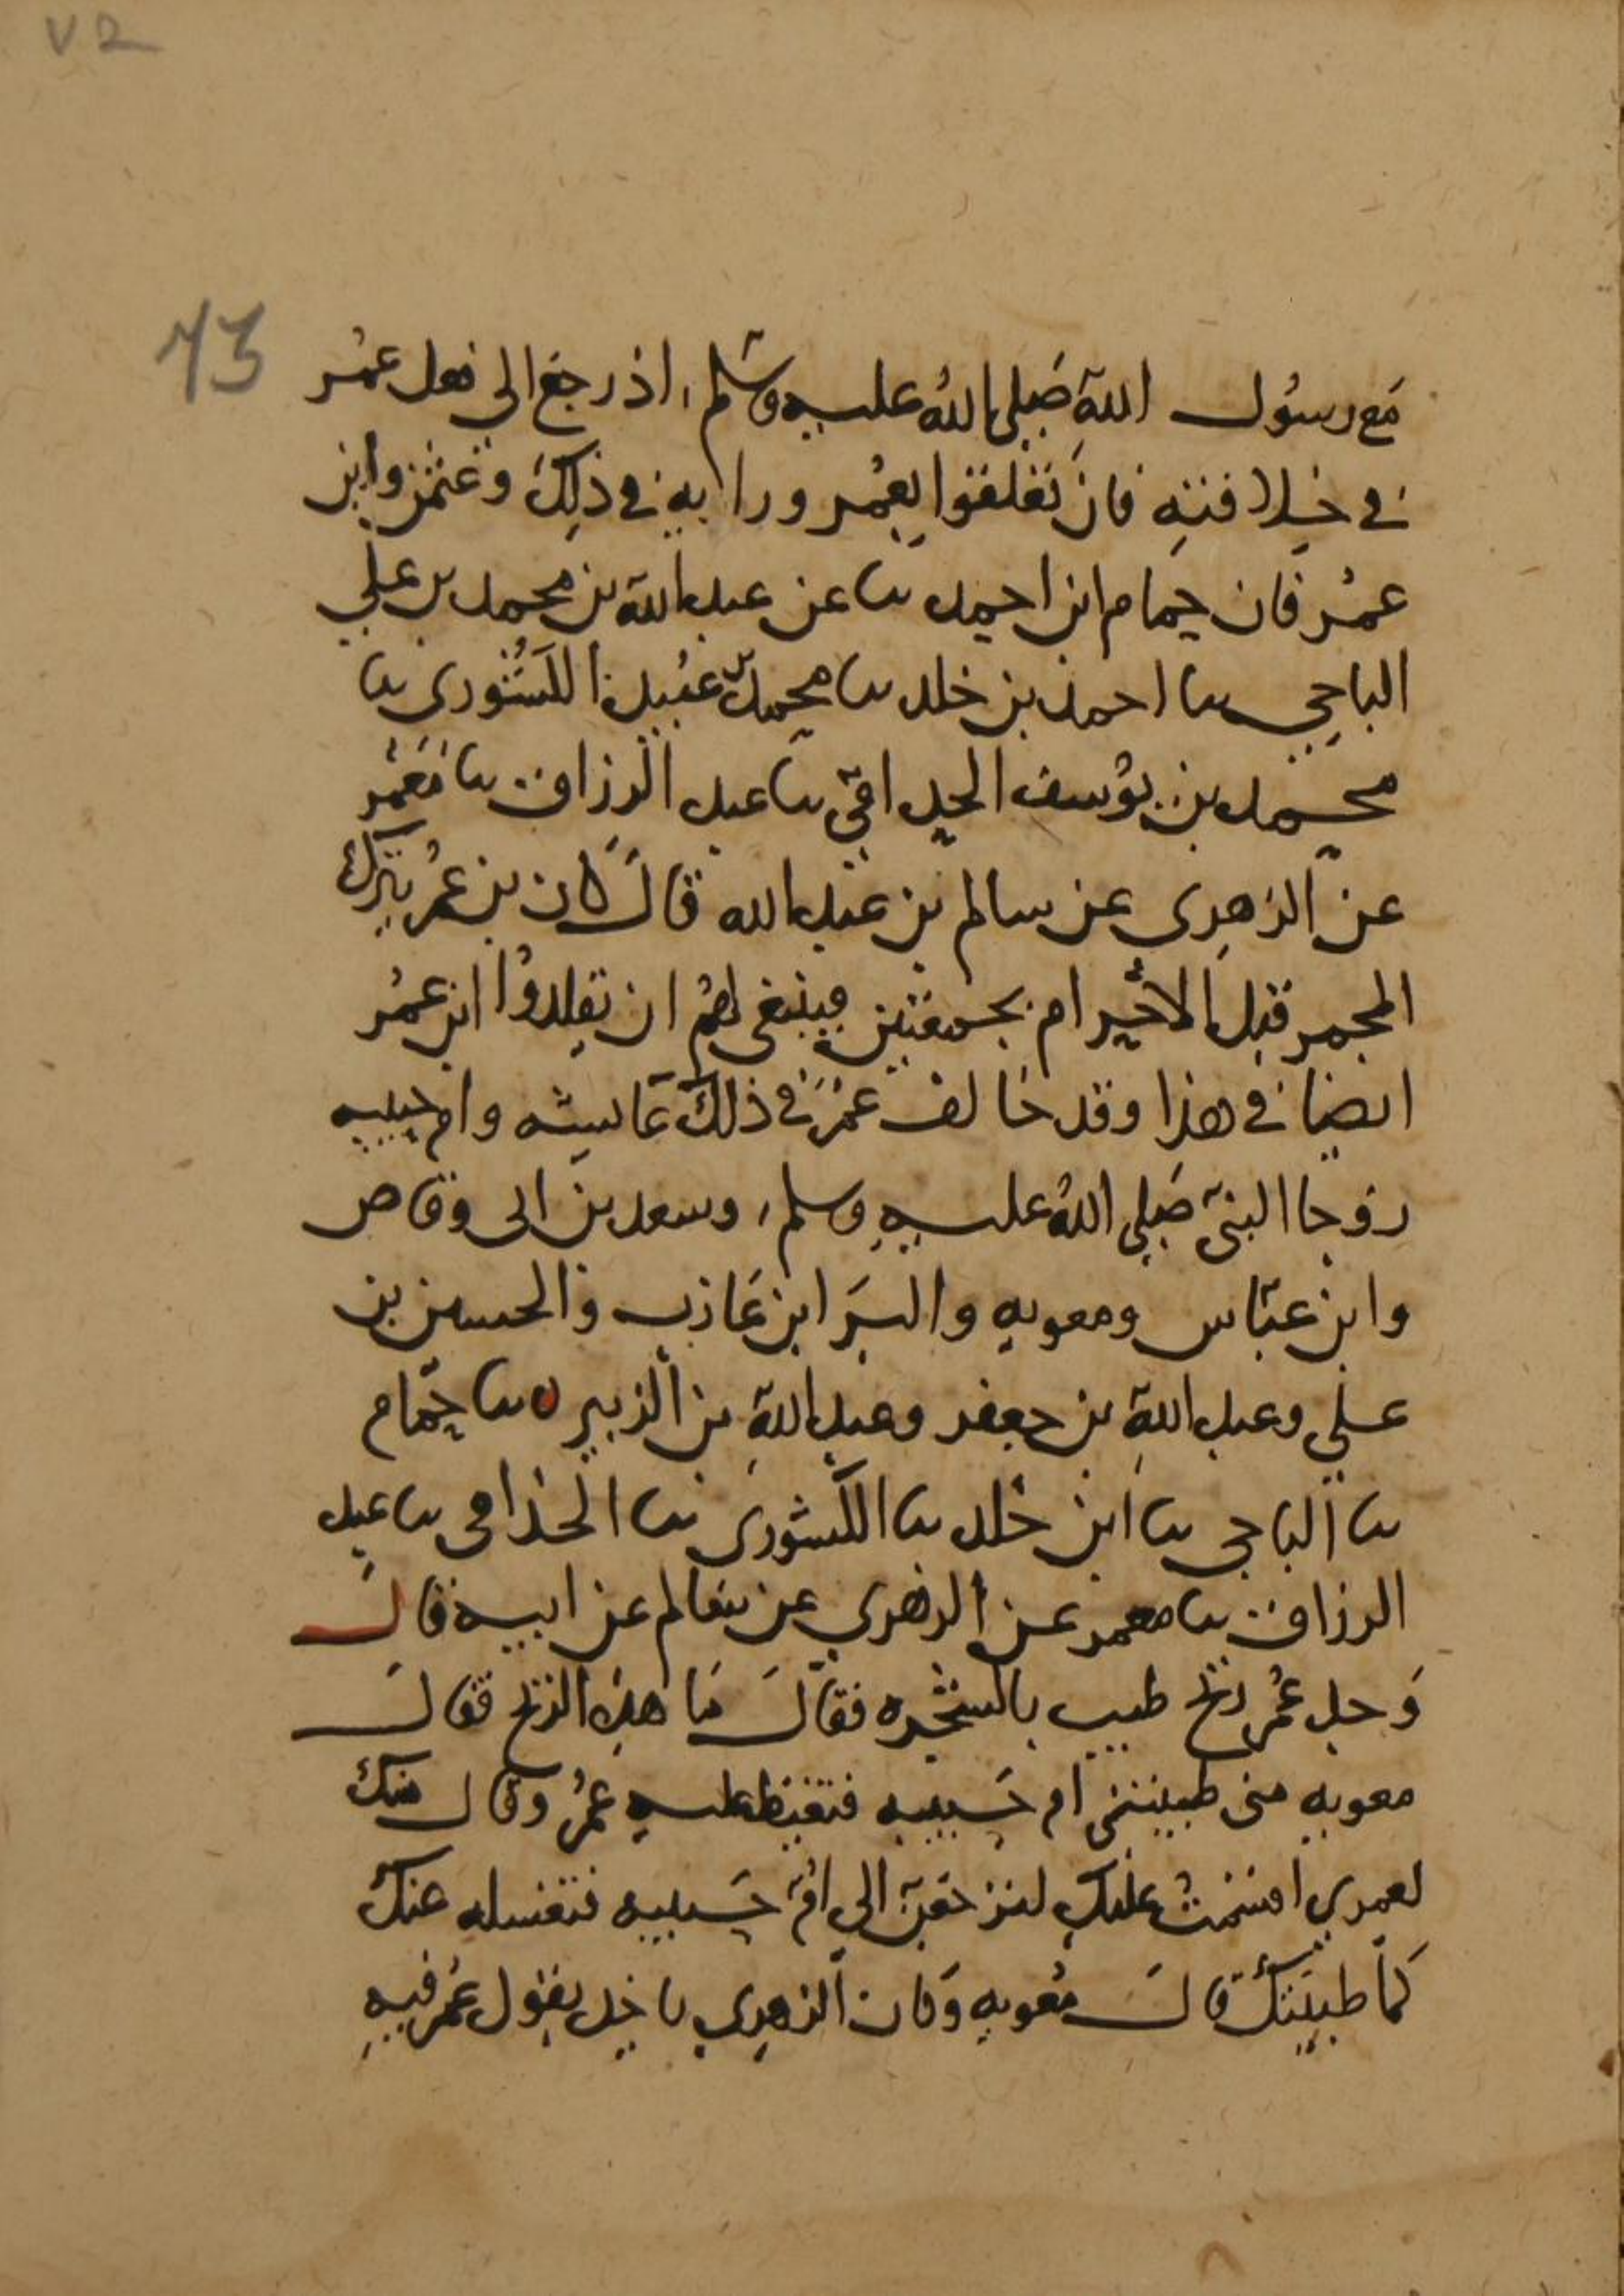 ٧٢
73
مَع رسُول اللهِ صَلى اللهُ عليه وسَلم، اذ رجعَ الى فعل عمُر
في خلافته فان تعَلقوا بعمُر ورايه في ذلِكَ وعثمن وابن
عمُر فان حمام ابن احمد ثنا عن عبد الله بن محمد بن علي
الباجي ثنا احمد بن خلد ثنا محمد بن عُبيد الكَشُورى ثنا
محمد بن يوُسف الحداقى ثنا عبد الرزاق ثنا مَعْمر
عن الزهرى عن سالم بن عَبد الله قالَ كان بن عمُر يترك
المجمر قبل الاحرام بجمعتين فينبغى لهُم ان يقلدوُا ابن عمُر
ايضا في هذا وقد خالف عمُر في ذلكَ عَايشه وام حبيبه
زوجا النبى صَلى اللهُ عليهِ وسلم، وسعد بن ابى وقاص
وابن عبّاس ومعويه والبرَا بن عَازب والحسين بن
على وعبد اللهِ بن جعفر وعبد اللهِ بن الزبير ه ثنا حمّام
ثنا الباجى ثنا ابن خلد ثنا الكشورى ثنا الحذامى ثنا عبد
الرزاق ثنا معمر عن الزهري عن سَالم عن ابيه قالَ
وَجد عمُر ريح طيب بالشجره فقالَ مَا هذه الريح فقال
معويه منى طيبتنى ام حَبيبه فتغيظ عليه عمُر وقال منك
لعمري اقسَمتُ عليك لترجعَن الى امّ حَبيبه فتغسله عنك
كمَا طيبَتك قالَ مُعويه وَكان الزهري ياخذ بقول عمُر فيهِ